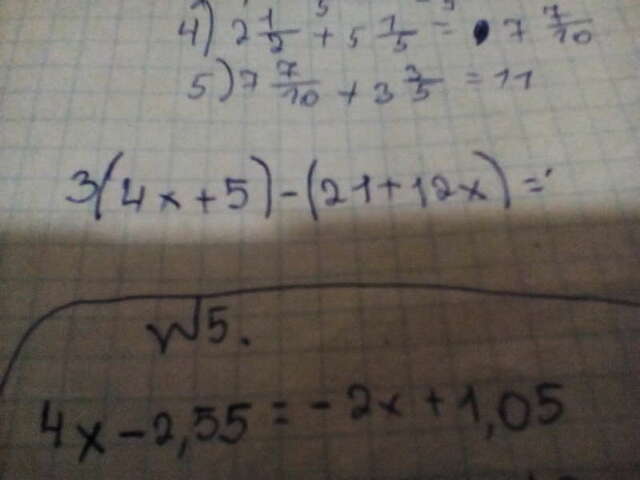 4) 2 1/2 + 5 1/5 = 7 7/10
5) 7 7/10 + 3 3/5 = 11
3(4x+5)-(21+12x)=
№5.
4x-2,55=-2x+1,05